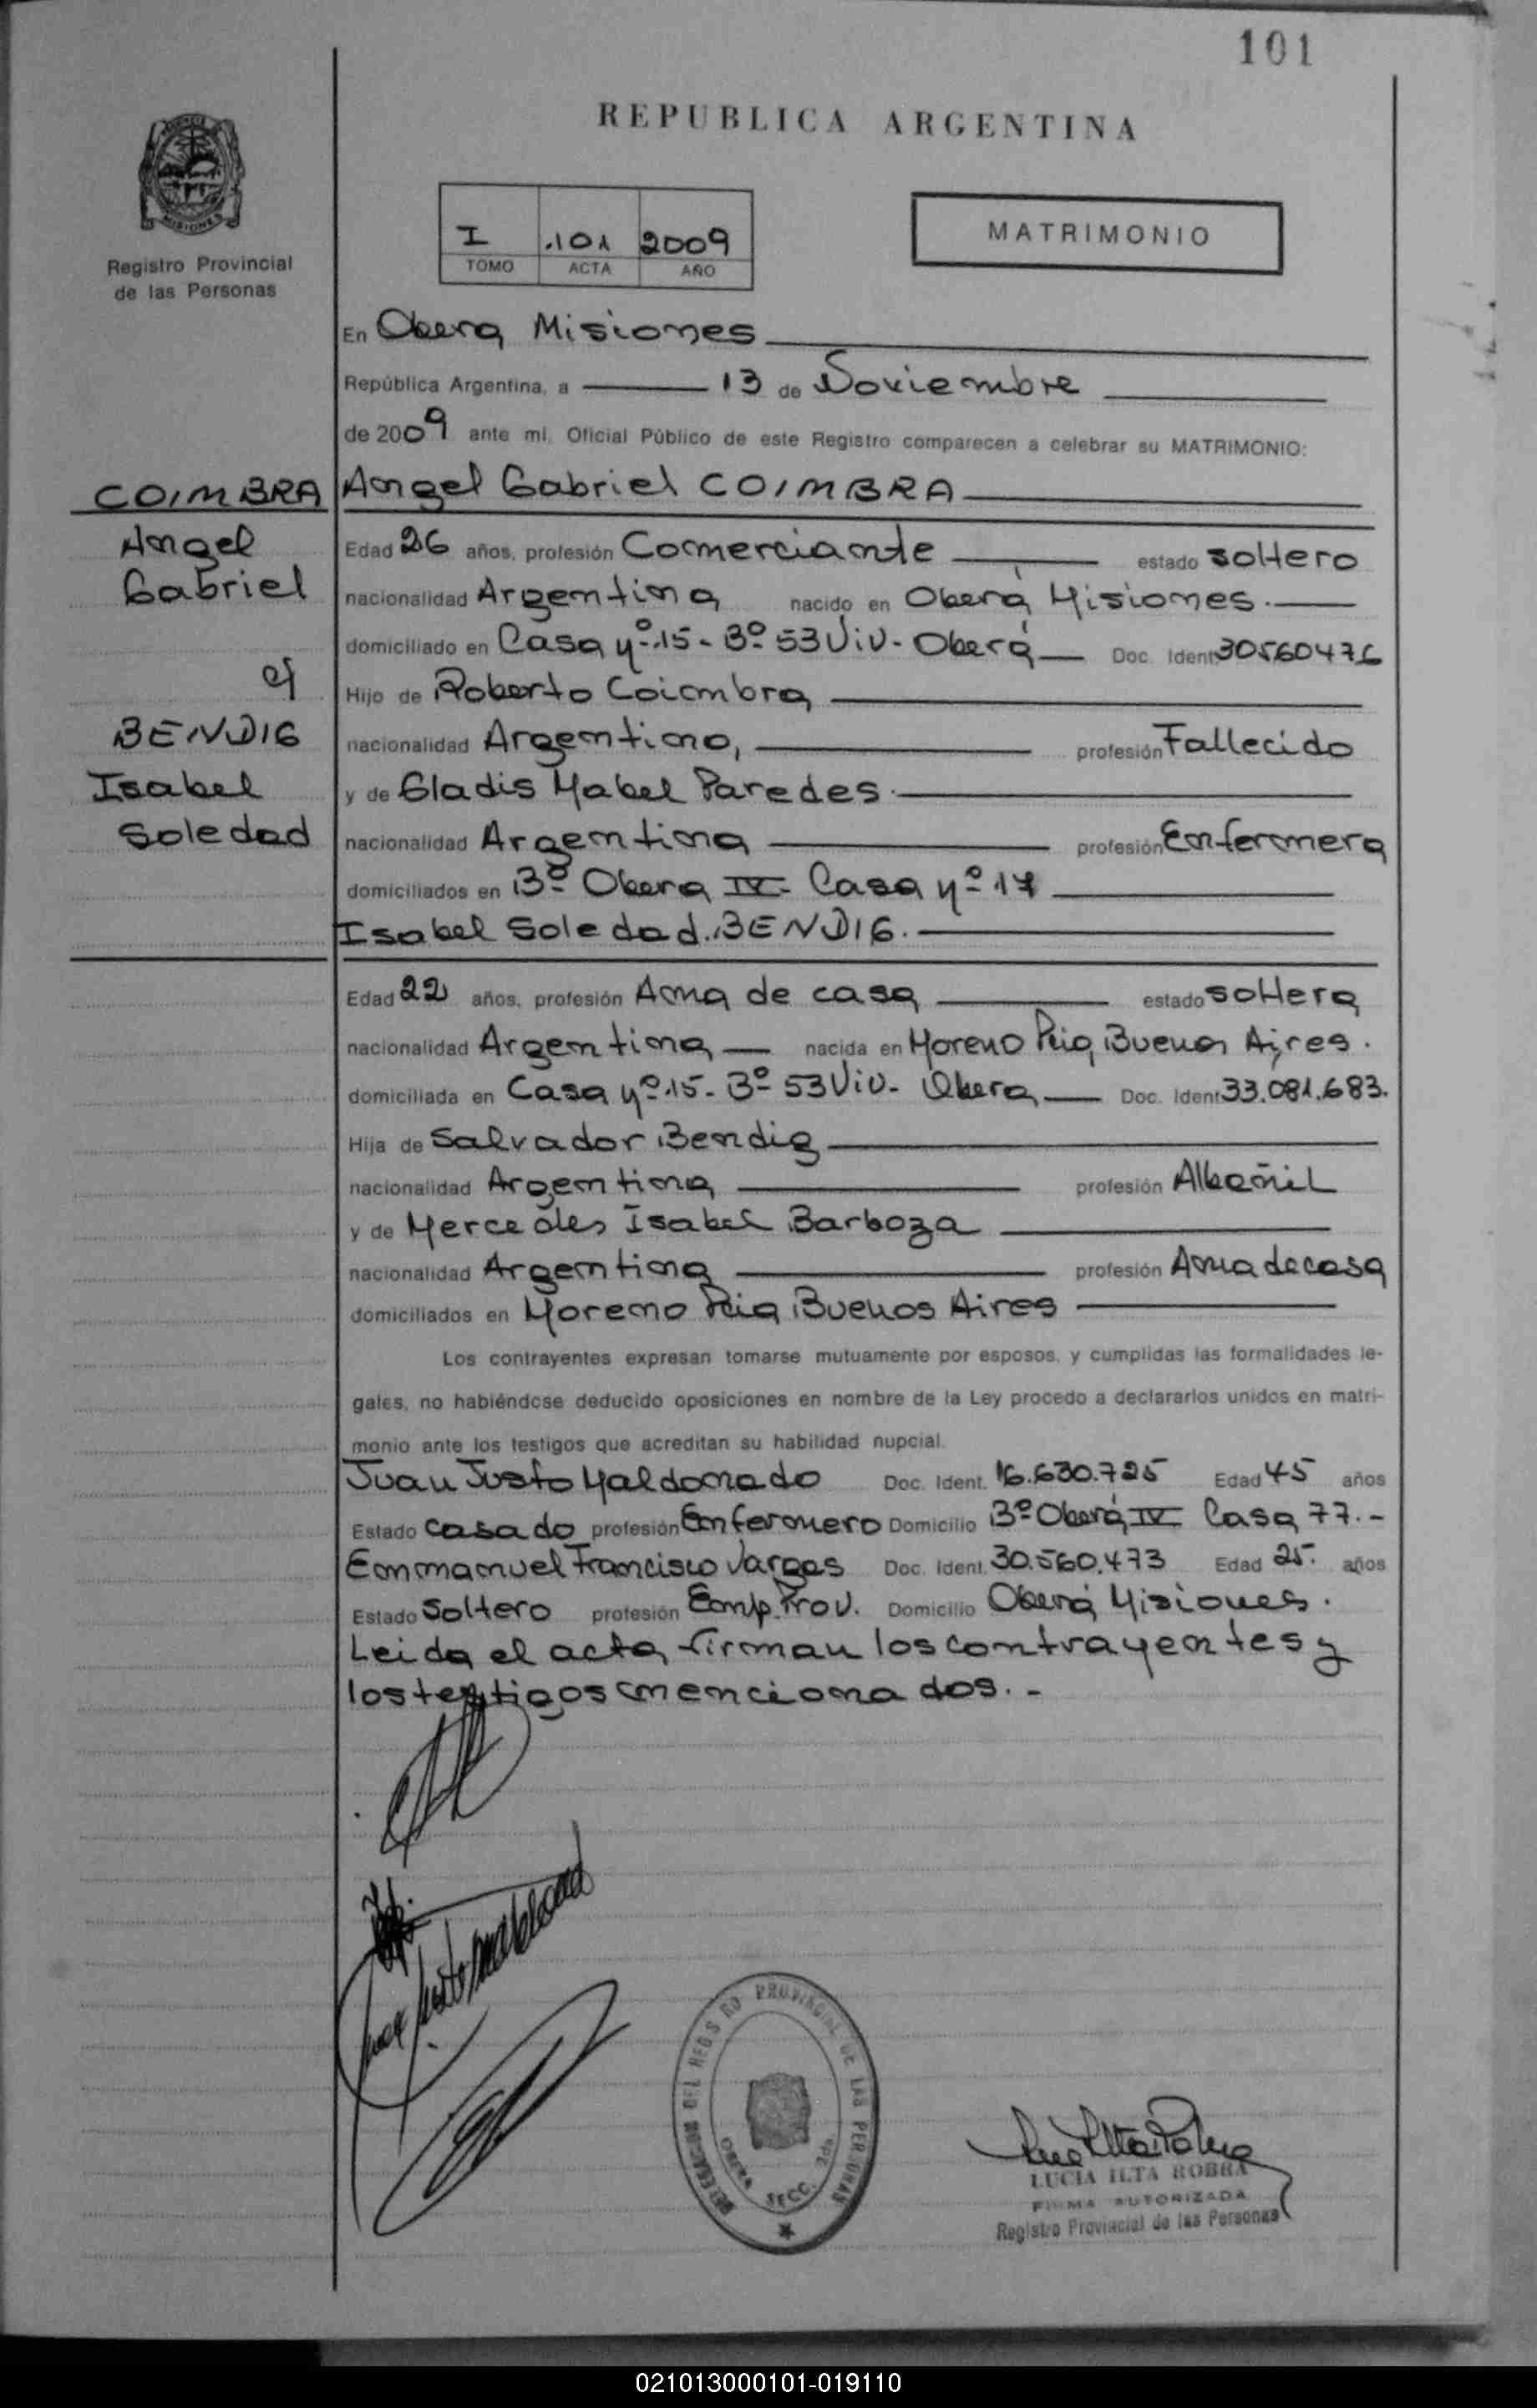 101
REPUBLICA ARGENTINA
Registro Provincial
de las Personas
I .101 2009
TOMO ACTA AÑO
MATRIMONIO
En Obera Misiones
República Argentina, a 13 de Noviembre
de 2009 ante mi, Oficial Público de este Registro comparecen a celebrar su MATRIMONIO:
COIMBRA
Angel
Gabriel
c/
BENDIG
Isabel
Soledad
Angel Gabriel COIMBRA
Edad 26 años, profesión Comerciante estado soltero
nacionalidad Argentina nacido en Oberá Misiones.
domiciliado en Casa nº 15 - Bº 53 Viv - Oberá Doc. Ident. 30560476
Hijo de Roberto Coimbra
nacionalidad Argentino, profesión Fallecido
y de Gladis Mabel Paredes.
nacionalidad Argentina profesión Enfermera
domiciliados en Bº Obera IV - Casa nº 17
Isabel Soledad. BENDIG.
Edad 22 años, profesión Ama de casa estado soltera
nacionalidad Argentina nacida en Moreno Pcia, Buenos Aires.
domiciliada en Casa nº 15 - Bº 53 Viv - Obera Doc. Ident. 33.081.683.
Hija de Salvador Bendig
nacionalidad Argentina profesión Albañil
y de Mercedes Isabel Barboza
nacionalidad Argentina profesión Ama de casa
domiciliados en Moreno Pcia Buenos Aires
Los contrayentes expresan tomarse mutuamente por esposos, y cumplidas las formalidades le-
gales, no habiéndose deducido oposiciones en nombre de la Ley procedo a declararlos unidos en matri-
monio ante los testigos que acreditan su habilidad nupcial.
Juan Justo Maldonado Doc. Ident. 16.630.725 Edad 45 años
Estado casado profesión Enfermero Domicilio Bº Oberá IV Casa 77.-
Emmanuel Francisco Vargas Doc. Ident. 30.560.473 Edad 25. años
Estado Soltero profesión Emp. Prov. Domicilio Oberá Misiones.
Leida el acta, firman los contrayentes y
los testigos mencionados. -
DELEGACION DEL REGISTRO PROVINCIAL DE LAS PERSONAS
OBERA SECC. 2da
LUCIA ILTA ROBRA
FIRMA AUTORIZADA
Registro Provincial de las Personas
021013000101-019110